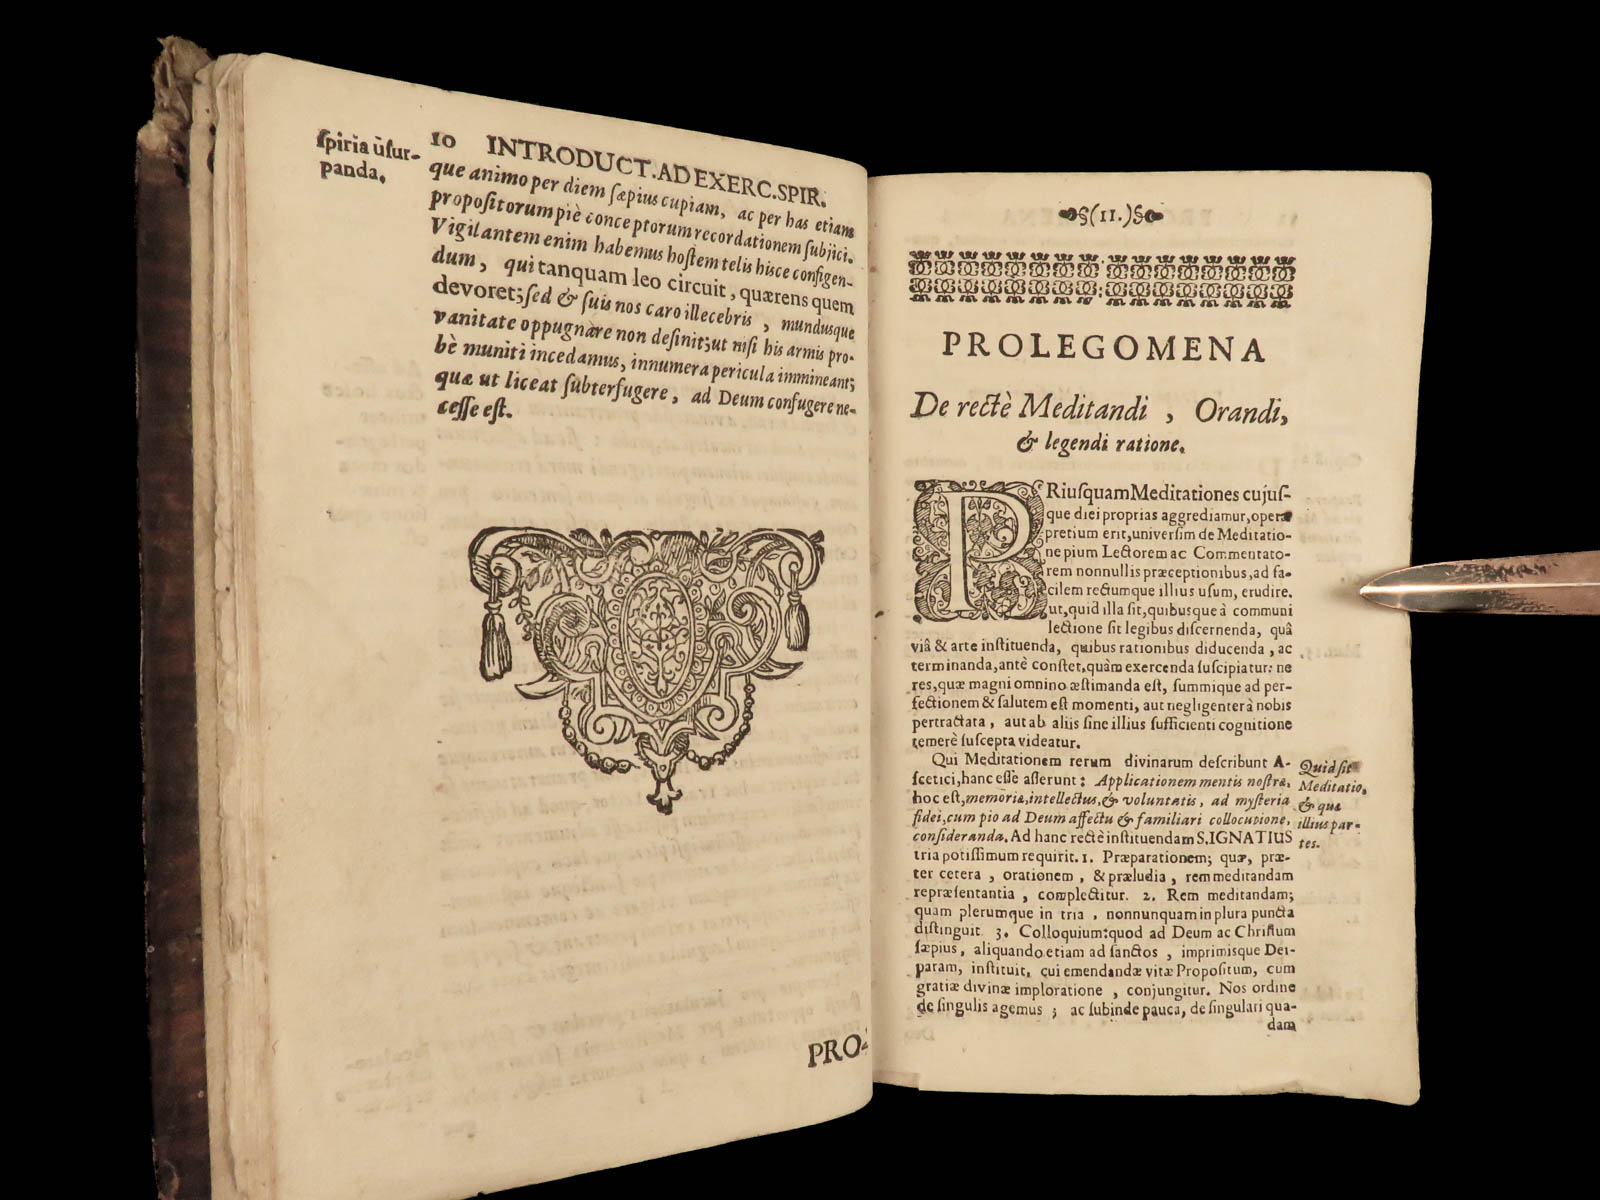 10 INTRODUCT. AD EXERC. SPIR.
ſpiria ùſur-
panda.
que animo per diem ſæpius cupiam, ac per has etiam
propoſitorum piè conceptorum recordationem ſubjici.
Vigilantem enim habemus hoſtem telis hisce configen-
dum, qui tanquam leo circuit, quærens quem
devoret; ſed & ſuis nos caro illecebris, mundusque
vanitate oppugnare non deſinit; ut niſi his armis pro-
bè muniti incedamus, innumera pericula immineant;
quæ ut liceat ſubterfugere, ad Deum confugere ne-
ceſſe eſt.
PRO-
§(11.)§
PROLEGOMENA
De rectè Meditandi, Orandi,
& legendi ratione.
PRiuſquam Meditationes cujuſ-
que diei proprias aggrediamur, operæ
pretium erit, univerſim de Meditatio-
ne pium Lectorem ac Commentato-
rem nonnullis præceptionibus, ad fa-
cilem rectumque illius uſum, erudire.
ut, quid illa ſit, quibusque à communi
lectione ſit legibus diſcernenda, quâ
viâ & arte inſtituenda, quibus rationibus diducenda, ac
terminanda, antè conſtet, quàm exercenda ſuſcipiatur: ne
res, quæ magni omnino æſtimanda eſt, ſummique ad per-
fectionem & ſalutem eſt momenti, aut negligenter à nobis
pertractata, aut ab aliis ſine illius ſufficienti cognitione
temerè ſuſcepta videatur.
Qui Meditationem rerum divinarum deſcribunt A-
ſcetici, hanc eſſe aſſerunt: Applicationem mentis noſtræ,
hoc eſt, memoriæ, intellectus, & voluntatis, ad myſteria
fidei, cum pio ad Deum affectu & familiari collocutione,
conſideranda. Ad hanc rectè inſtituendam S. IGNATIUS
tria potiſſimum requirit. 1. Præparationem; quæ, præ-
ter cetera, orationem, & præludia, rem meditandam
repræſentantia, complectitur. 2. Rem meditandam;
quam plerumque in tria, nonnunquam in plura puncta
diſtinguit. 3. Colloquium: quod ad Deum ac Chriſtum
ſæpius, aliquando etiam ad ſanctos, imprimisque Dei-
param, inſtituit, cui emendandæ vitæ Propoſitum, cum
gratiæ divinæ imploratione, conjungitur. Nos ordine
de ſingulis agemus; ac ſubinde pauca, de ſingulari qua-
dam
Quid ſit
Meditatio,
& quæ
illius par-
tes.